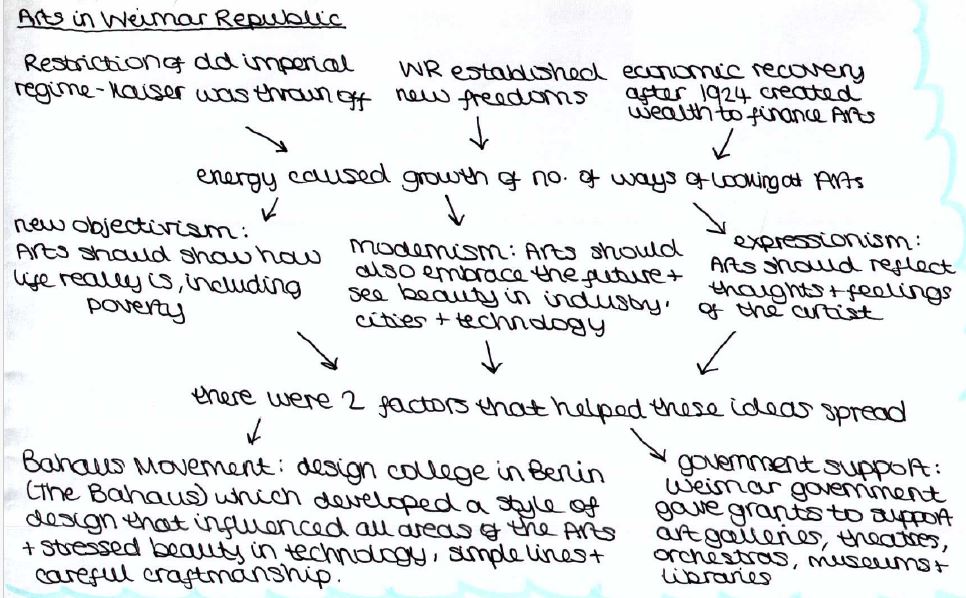 Arts in Weimar Republic
Restriction of old imperial
regime - Kaiser was thrown off
WR established
new freedoms
economic recovery
after 1924 created
wealth to finance Arts
energy caused growth of no. of ways of looking at Arts
new objectivism:
Arts should show how
life really is, including
poverty
modernism: Arts should
also embrace the future +
see beauty in industry,
cities + technology
expressionism:
Arts should reflect
thoughts + feelings
of the artist
there were 2 factors that helped these ideas spread
Bahaus Movement: design college in Berlin
(The Bahaus) which developed a style of
design that influenced all areas of the Arts
+ stressed beauty in technology, simple lines +
careful craftmanship.
government support:
Weimar government
gave grants to support
art galleries, theatres,
orchestras, museums +
libraries